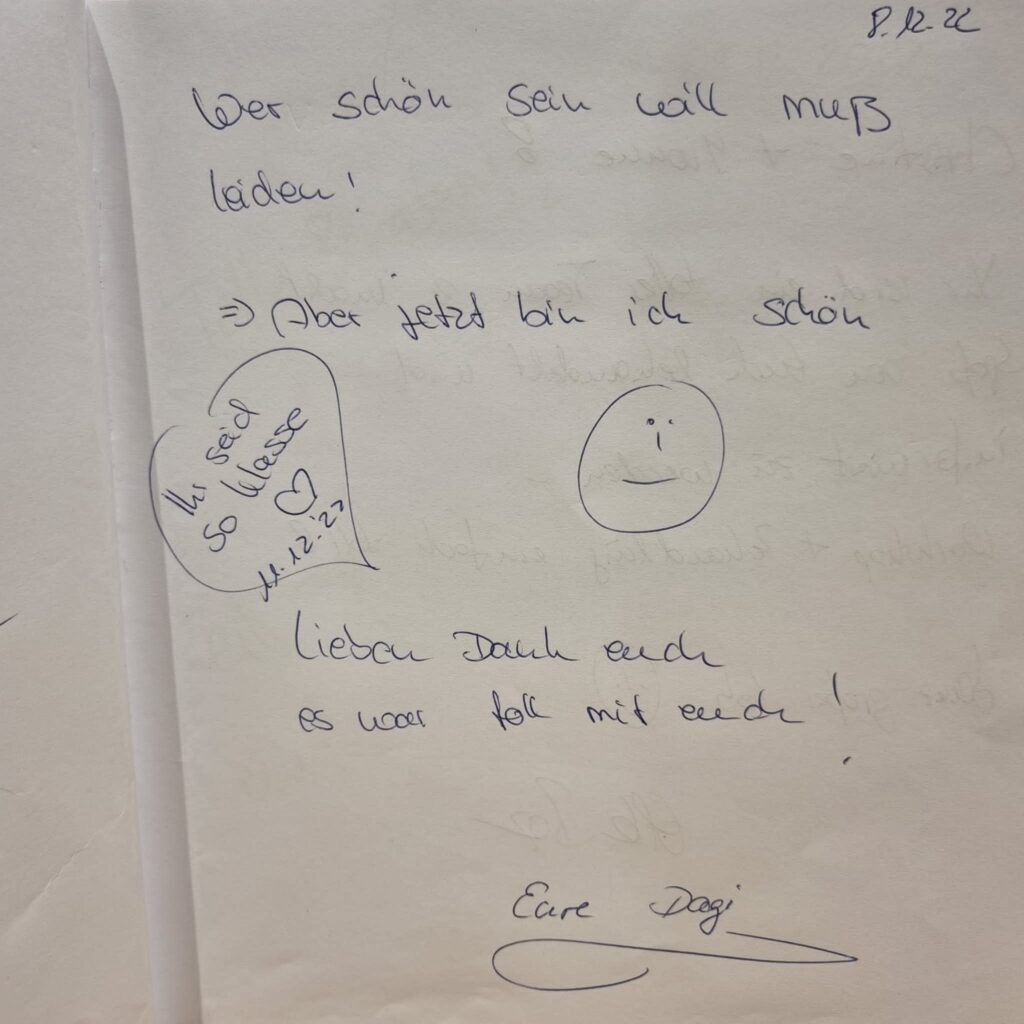 8.12.22
Wer schön sein will muß
leiden!
=> Aber jetzt bin ich schön
Ihr seid
so klasse
♡
11.12.'22
Lieben Dank euch
es war toll mit euch!
Eure Dagi